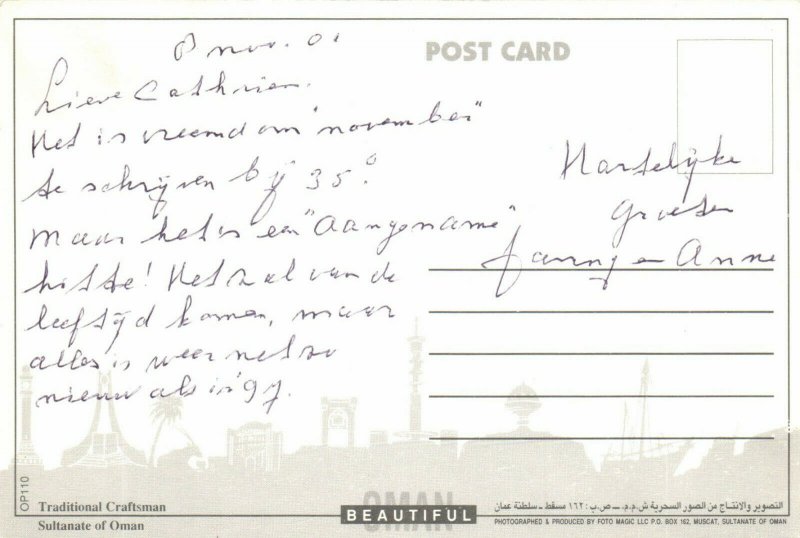 8 nov. 01
POST CARD
Lieve Cathrien.
Het is vreemd om "november"
te schrijven bij 35°.
Maar het is een "Aangename"
hitte! Het zal van de
leeftijd komen, maar
alles is weer net zo
nieuw als in '97.
Hartelijke
groeten
Janny en Anne
OP110
Traditional Craftsman
Sultanate of Oman
OMAN
BEAUTIFUL
التصوير والانتاج من الصور السحرية ش.م.م. ــ ص.ب: ١٦٢ مسقط ــ سلطنة عمان
PHOTOGRAPHED & PRODUCED BY FOTO MAGIC LLC P.O. BOX 162, MUSCAT, SULTANATE OF OMAN